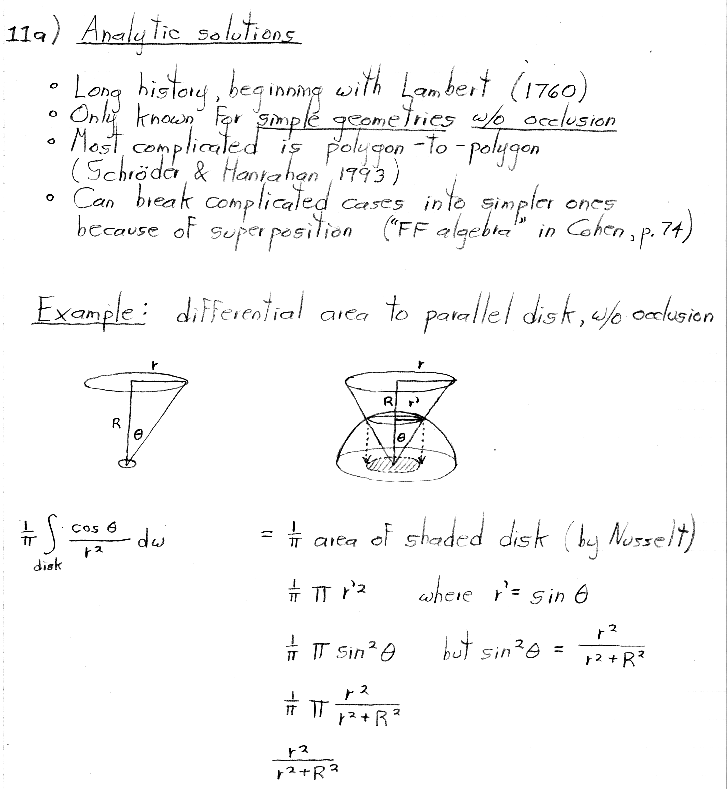 11a) Analytic solutions
° Long history, beginning with Lambert (1760)
° Only known for simple geometries w/o occlusion
° Most complicated is polygon-to-polygon
(Schröder & Hanrahan, 1993)
° Can break complicated cases into simpler ones
because of superposition ("FF algebra" in Cohen, p. 74)
Example: differential area to parallel disk, w/o occlusion
r
R
θ
r
R r'
θ
1/π ∫disk cos θ / r² dω = 1/π area of shaded disk (by Nusselt)
1/π π r'² where r' = sin θ
1/π π sin² θ but sin² θ = r² / r² + R²
1/π π r² / r² + R²
r² / r² + R²